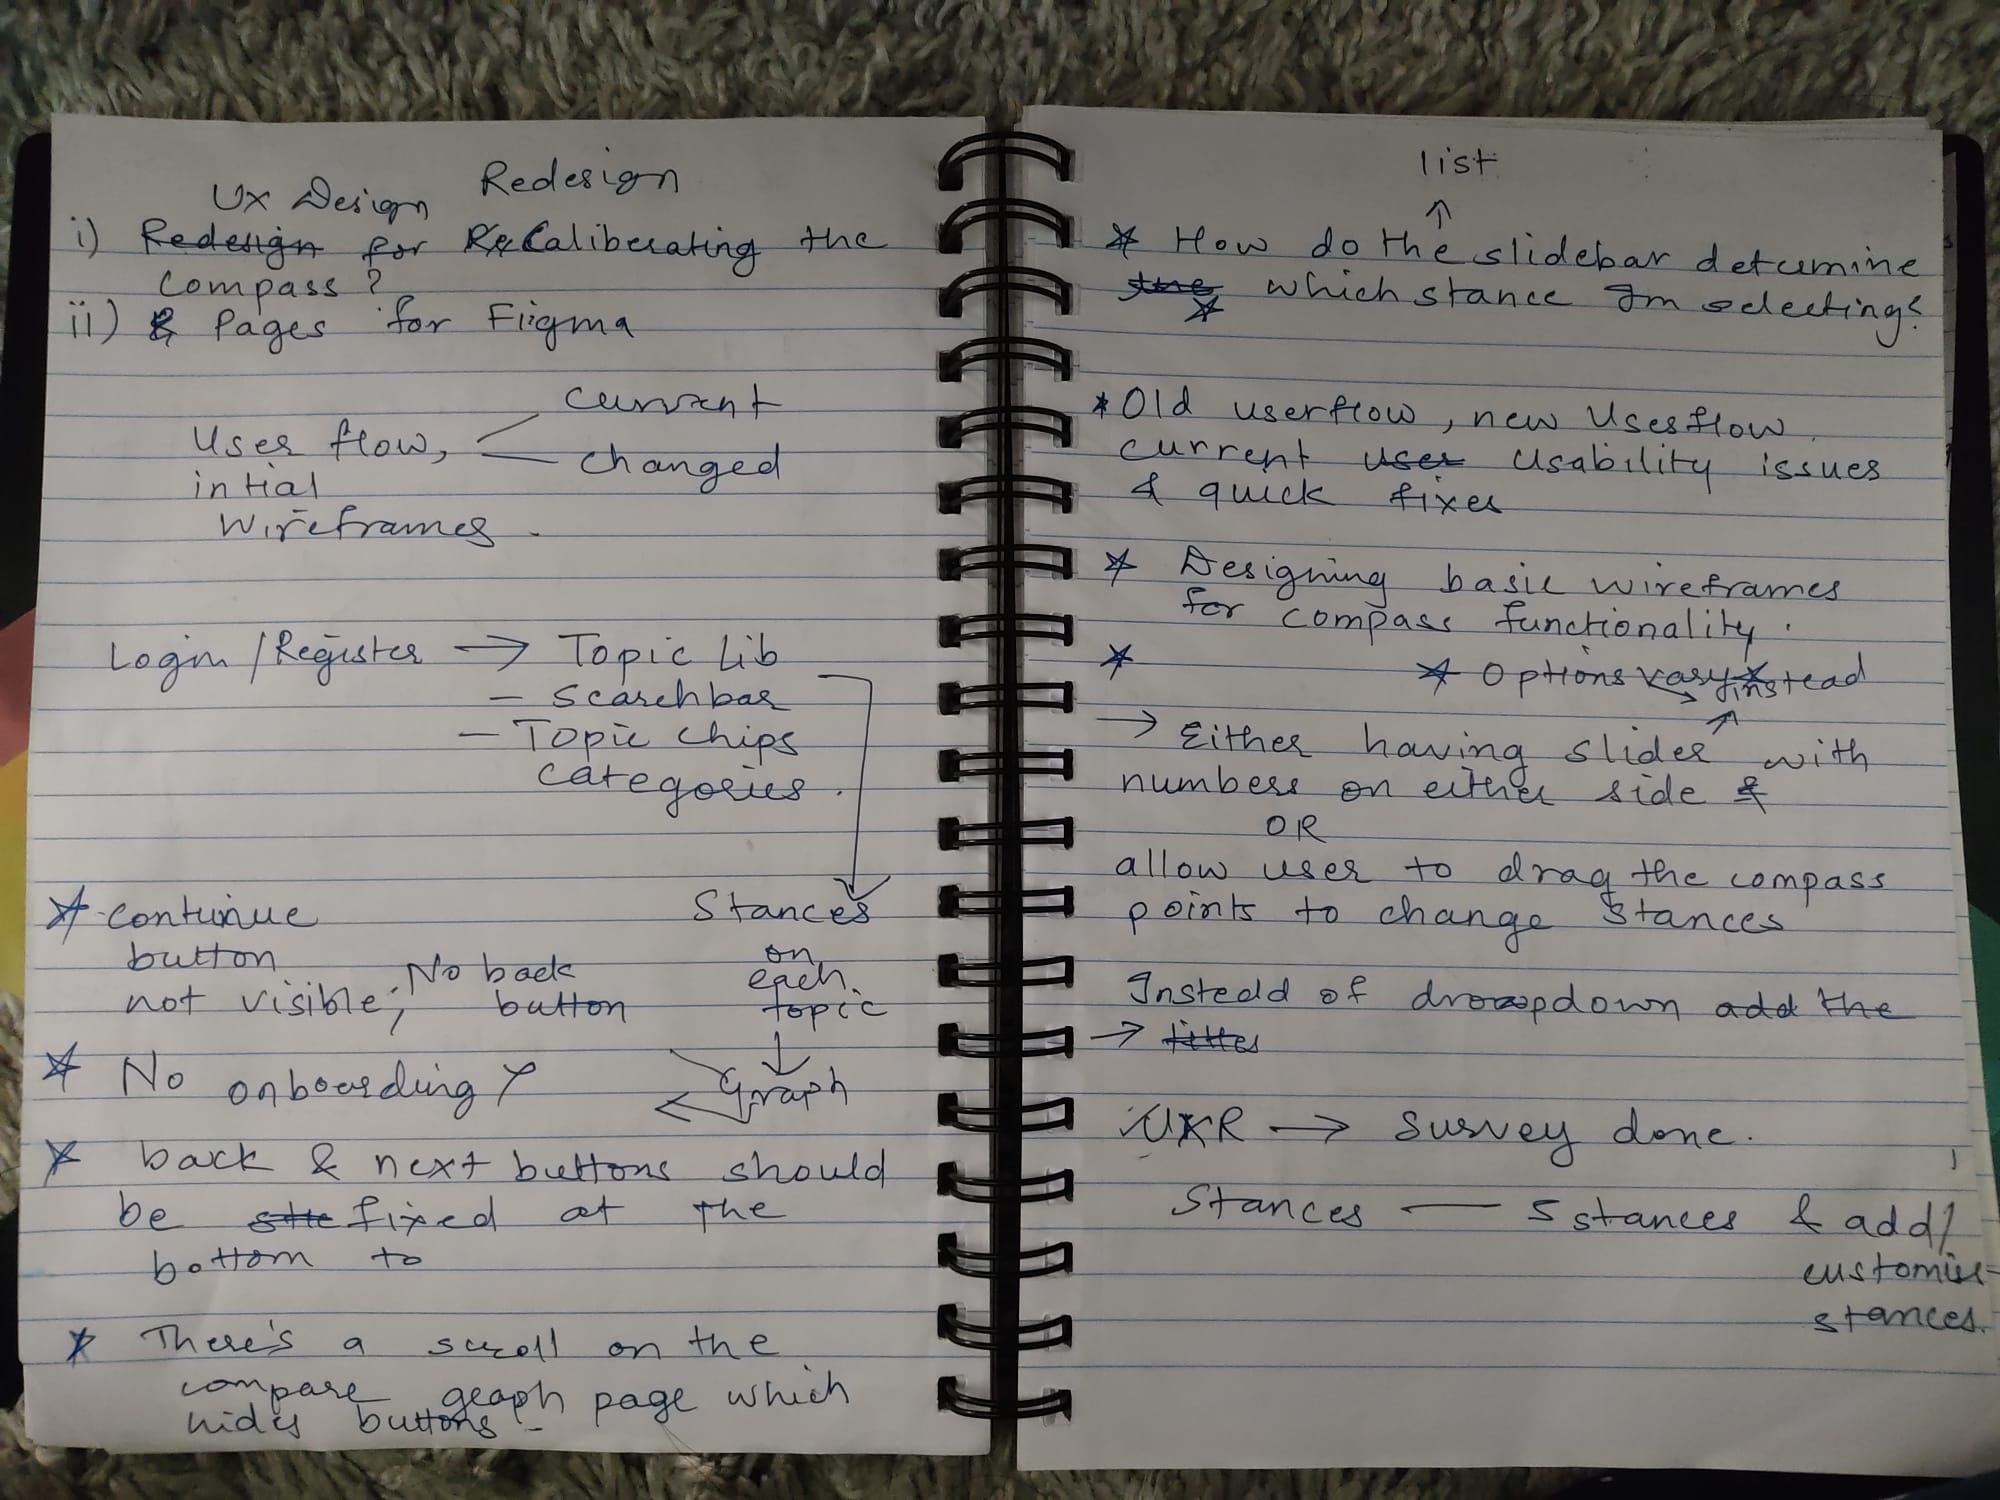 UX Design Redesign
i) Redesign for ReCaliberating the
compass?
ii) & Pages for Fiigma
User flow, current
changed
intial
wireframes.
Login / Register → Topic Lib
- Searchbar
- Topic chips
categories.
* continue
button
not visible; No back
button
Stances
on
each
topic
↓
Graph
* No onboarding?
* back & next buttons should
be fixed at the
bottom to
* There's a scroll on the
compare graph page which
hides buttons -
list
↑
* How do the slidebar determine
the which stance Im selecting?
*
* Old userflow, new Userflow,
current user usability issues
& quick fixes
* Designing basic wireframes
for compass functionality.
*
* Options vary instead
→ Either having slider with
numbers on either side &
OR
allow user to drag the compass
points to change stances
Instead of dropdown add the
→ titles
UXR → Survey done.
Stances — 5 stances & add/
customise
stances.